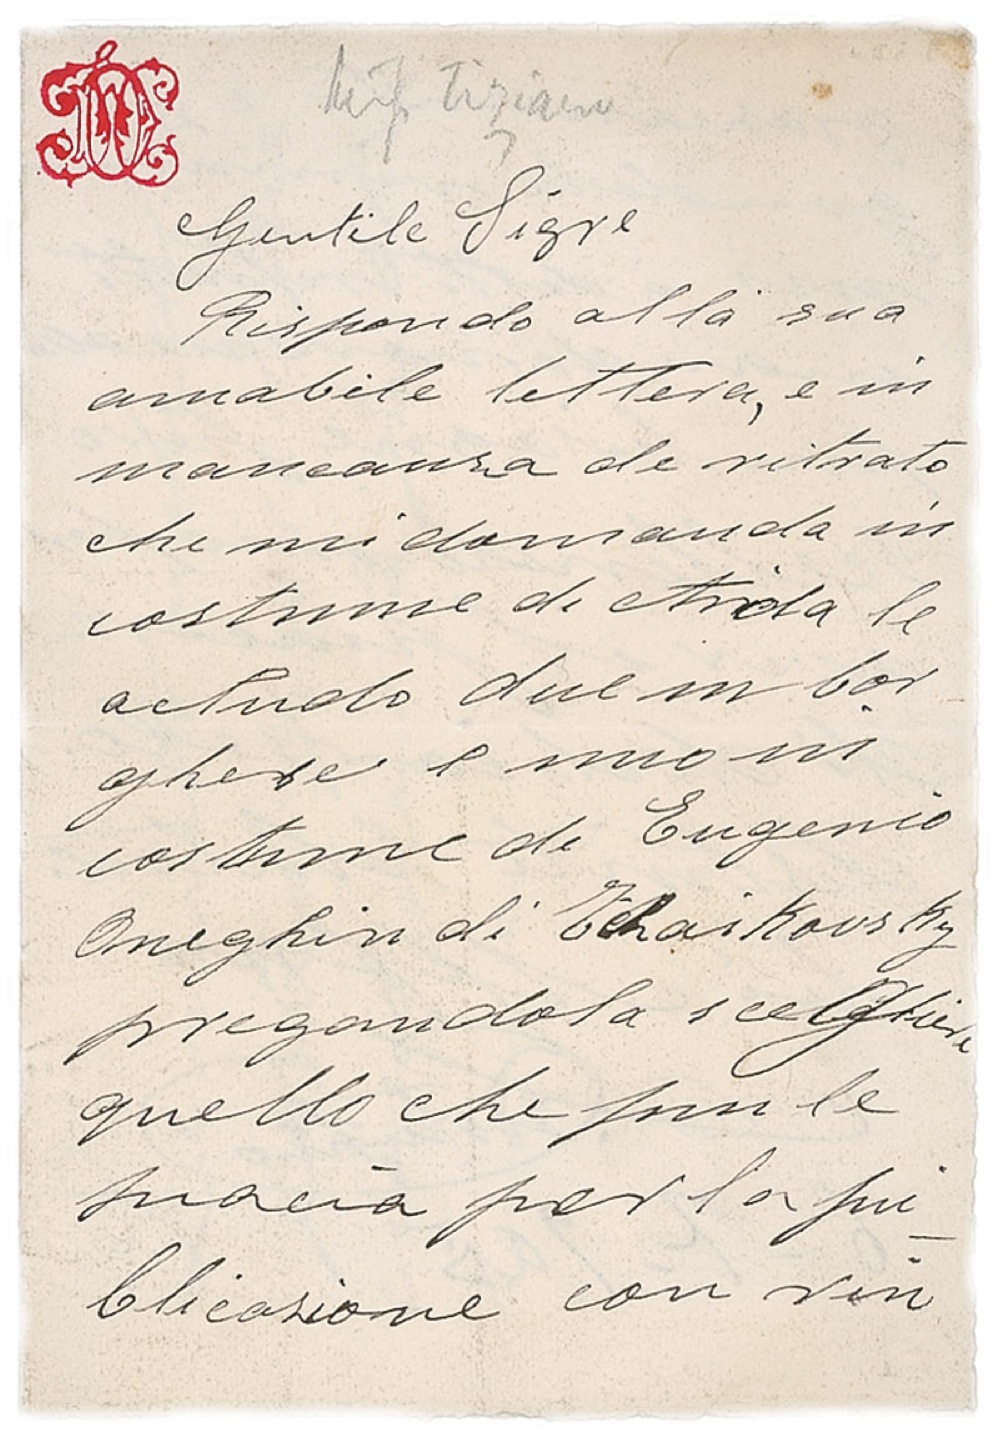 Gentile Sigre
Rispondo alla sua
amabile lettera, e in
mancansa de ritrato
che mi domanda in
costume di Aida le
acludo due in bor
ghese e uno in
costume di Eugenio
Oneghin di Tchaikovsky
pregandola scegliere
quello che piu le
piacia per la pu_
blicasione con rin